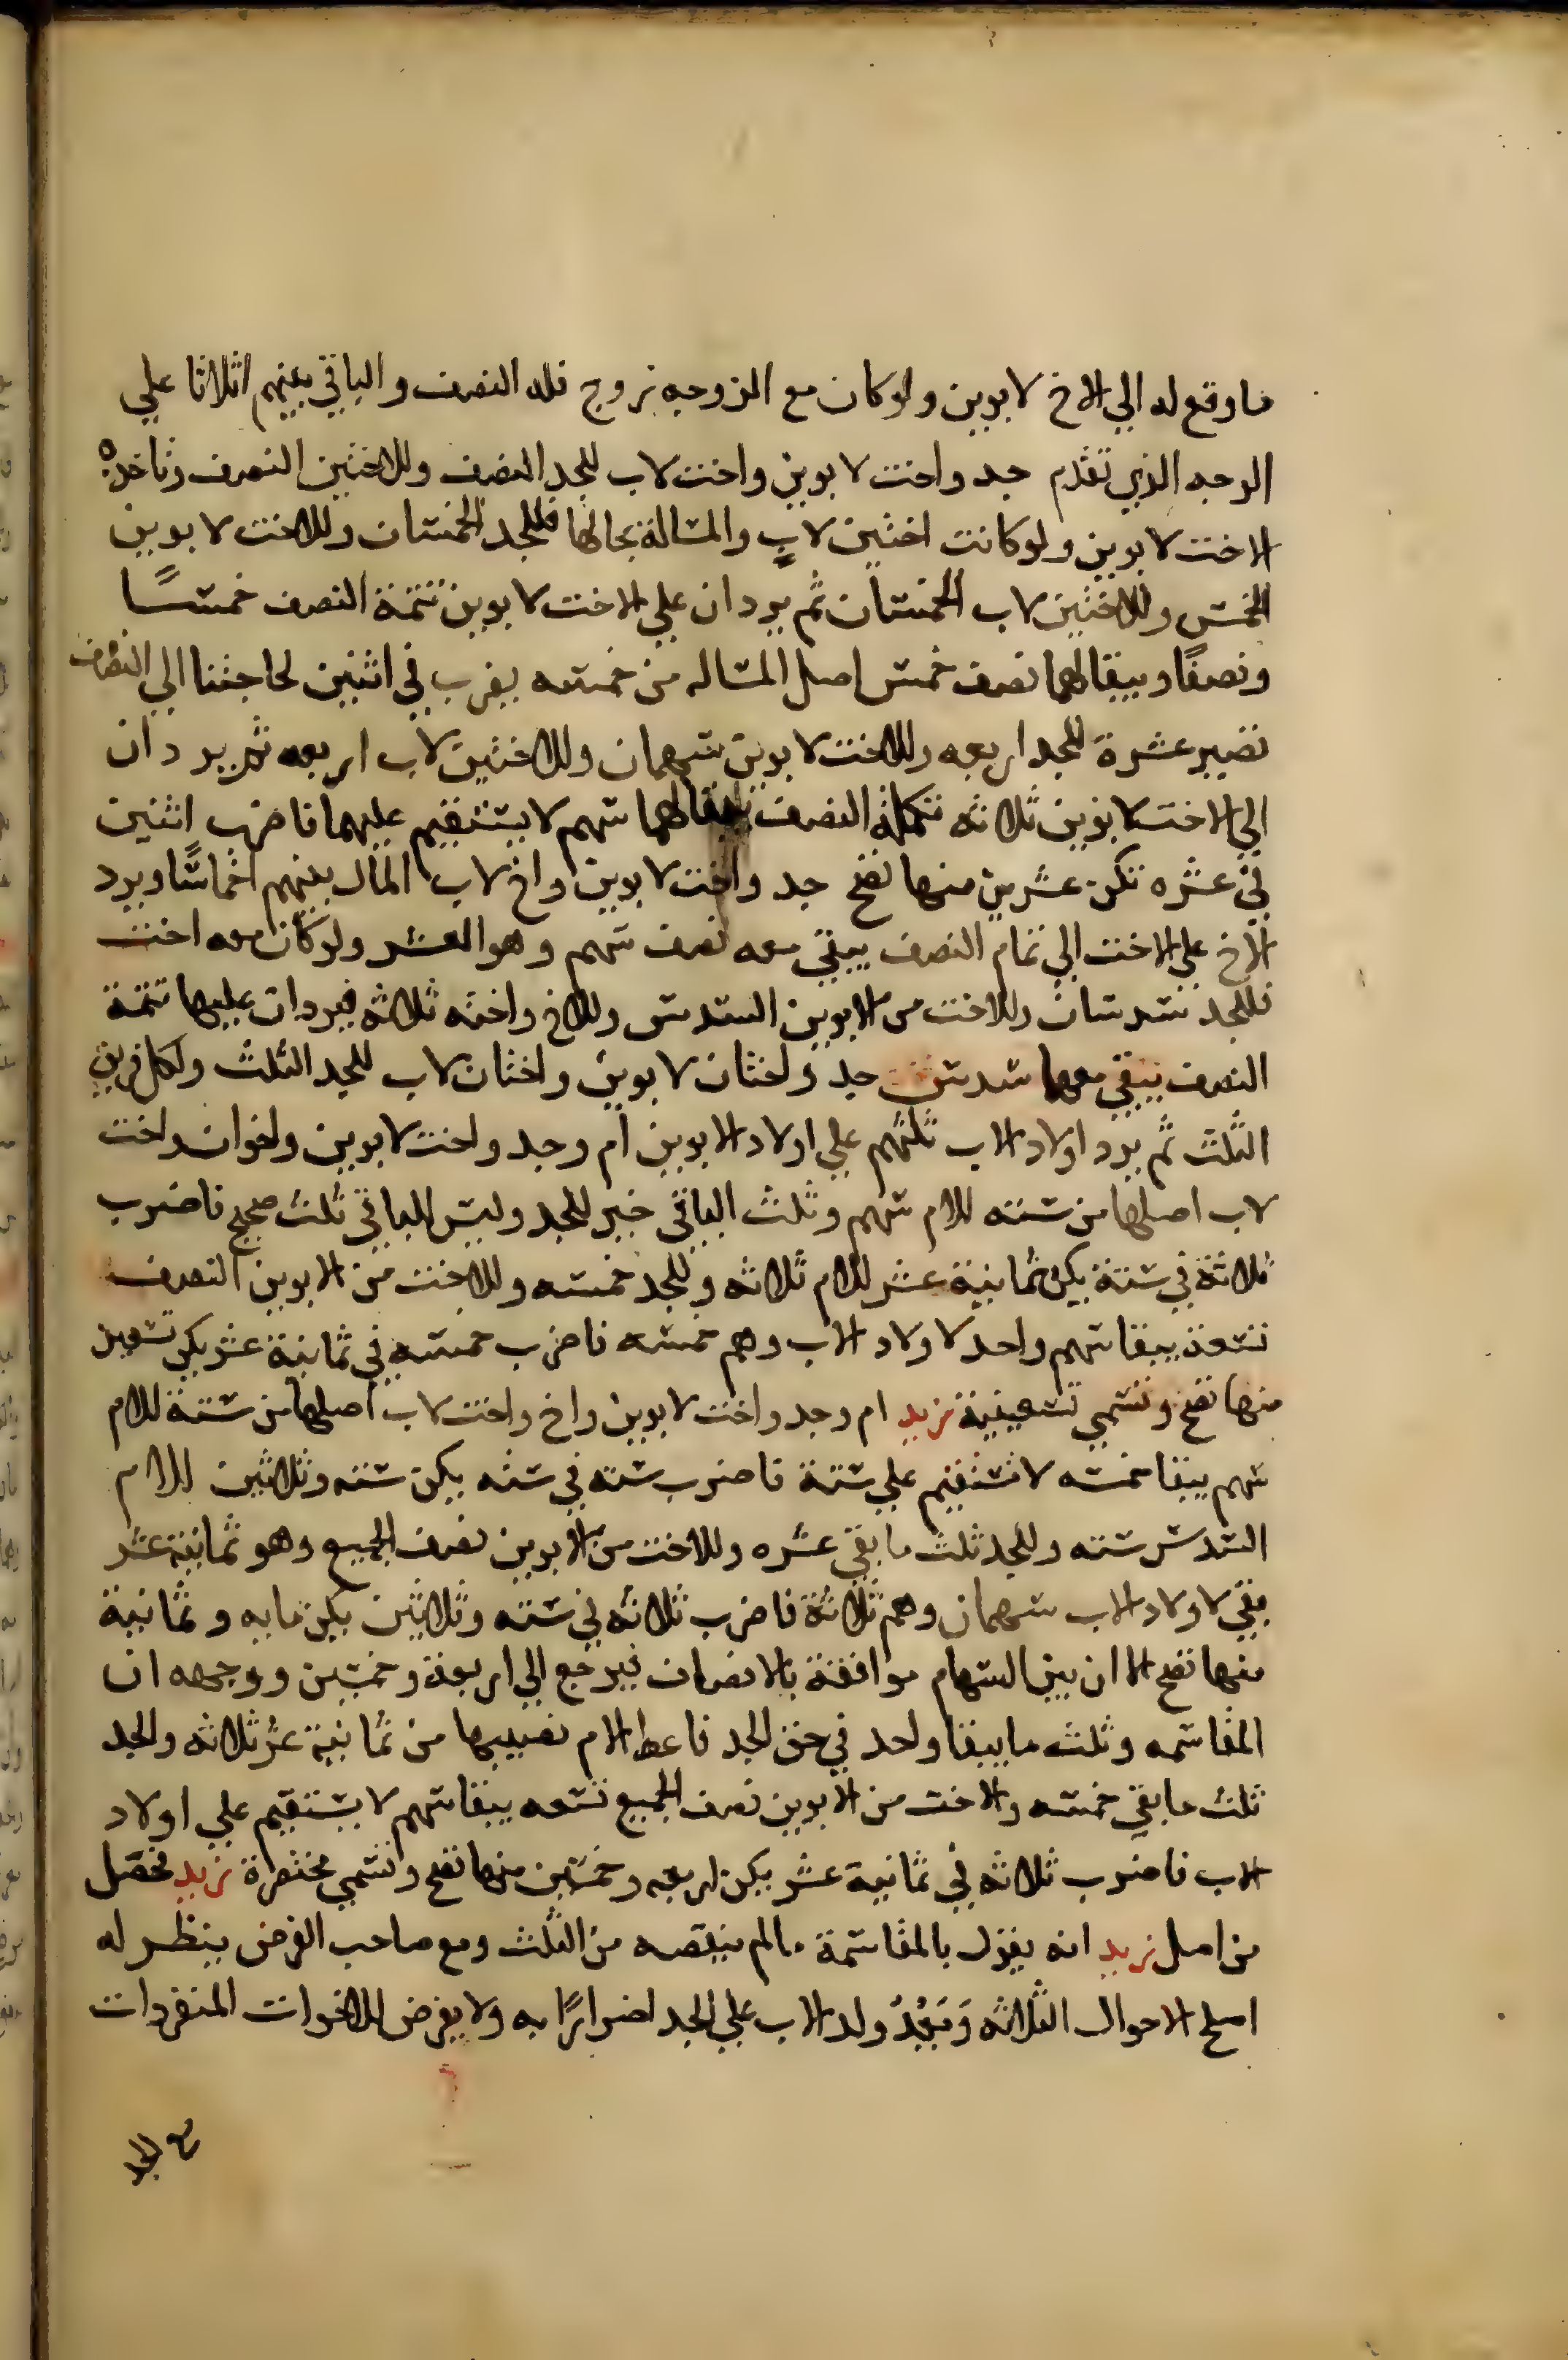 ما وقع له الي الاخ لابوين ولو كان مع الزوجه زوج فله النصف والباقي بينهم اثلاثا علي
الوجه الذي تقدم جد واخت لابوين واخت لاب للجد النصف وللاختين النصف وتاخذه
الاخت لابوين ولو كانت اختين لاب والمسالة بحالها فللجد الخمسان وللاخت لابوين
الخمس وللاختين لاب الخمسان ثم يردان علي الاخت لابوين تتمة النصف خمسًا
ونصفًا ويبقا لهما نصف خمس اصل المساله من خمسه يضرب في اثنين لحاجتنا الي النصف
تصير عشرة للجد اربعه وللاخت لابوين سهمان وللاختين لاب اربعه ثم يردان
الي الاخت لابوين ثلاثه تكملة النصف يبقا لهما سهم لا يستقيم عليهما فاضرب اثنين
في عشره تكن عشرين منها تصح جد واخت لابوين واخ لاب المال بينهم اخماسًا ويرد
الاخ علي الاخت الي تمام النصف يبقي معه نصف سهم وهو العشر ولو كان معه اخت
فللجد سدسان وللاخت من الابوين السدس وللاخ واخته ثلاثه فيردان عليها تتمة
النصف يبقي معهما سدس جد واختان لابوين واختان لاب للجد الثلث ولكل فريق
الثلث ثم يرد اولاد الاب ثلثهم علي اولاد الابوين ام وجد واخت لابوين واخوان واخت
لاب اصلها من سته للام سهم وثلث الباقي خير للجد وليس للباقي ثلث صحيح فاضرب
ثلاثة في ستة يكن ثمانية عشر للام ثلاثه وللجد خمسه وللاخت من الابوين النصف
تسعة يبقا سهم واحد لاولاد الاب وهم خمسه فاضرب خمسه في ثمانية عشر يكن تسعين
منها تصح وتسمي تسعينية زيد ام وجد واخت لابوين واخ واخت لاب اصلها من ستة للام
سهم يبقا خمسه لا تستقيم علي ستة فاضرب سته في سته يكن سته وثلاثين للام
السدس سته وللجد ثلث ما بقي عشره وللاخت من الابوين نصف الجميع وهو ثمانية عشر
بقي لاولاد الاب سهمان وهم ثلاثة فاضرب ثلاثه في سته وثلاثين يكن مايه وثمانية
منها تصح الا ان بين السهام موافقة بالانصاف فيرجع الي اربعة وخمسين ووجهه ان
المقاسمه وثلث ما يبقا واحد في حق الجد فاعط الام نصيبها من ثمانية عشر ثلاثه والجد
ثلث ما بقي خمسه والاخت من الابوين نصف الجميع تسعه يبقا سهم لا يستقيم علي اولاد
الاب فاضرب ثلاثه في ثمانية عشر يكن اربعه وخمسين منها تصح وتسمي مختصرة زيد فحصل
من اصل زيد انه يقول بالمقاسمة ما لم ينقصه من الثلث ومع صاحب الفرض ينظر له
اصلح الاحوال الثلاثه وَيَعُدُّ ولد الاب علي الجد اضرارًا به ولا يفرض للاخوات المنفردات